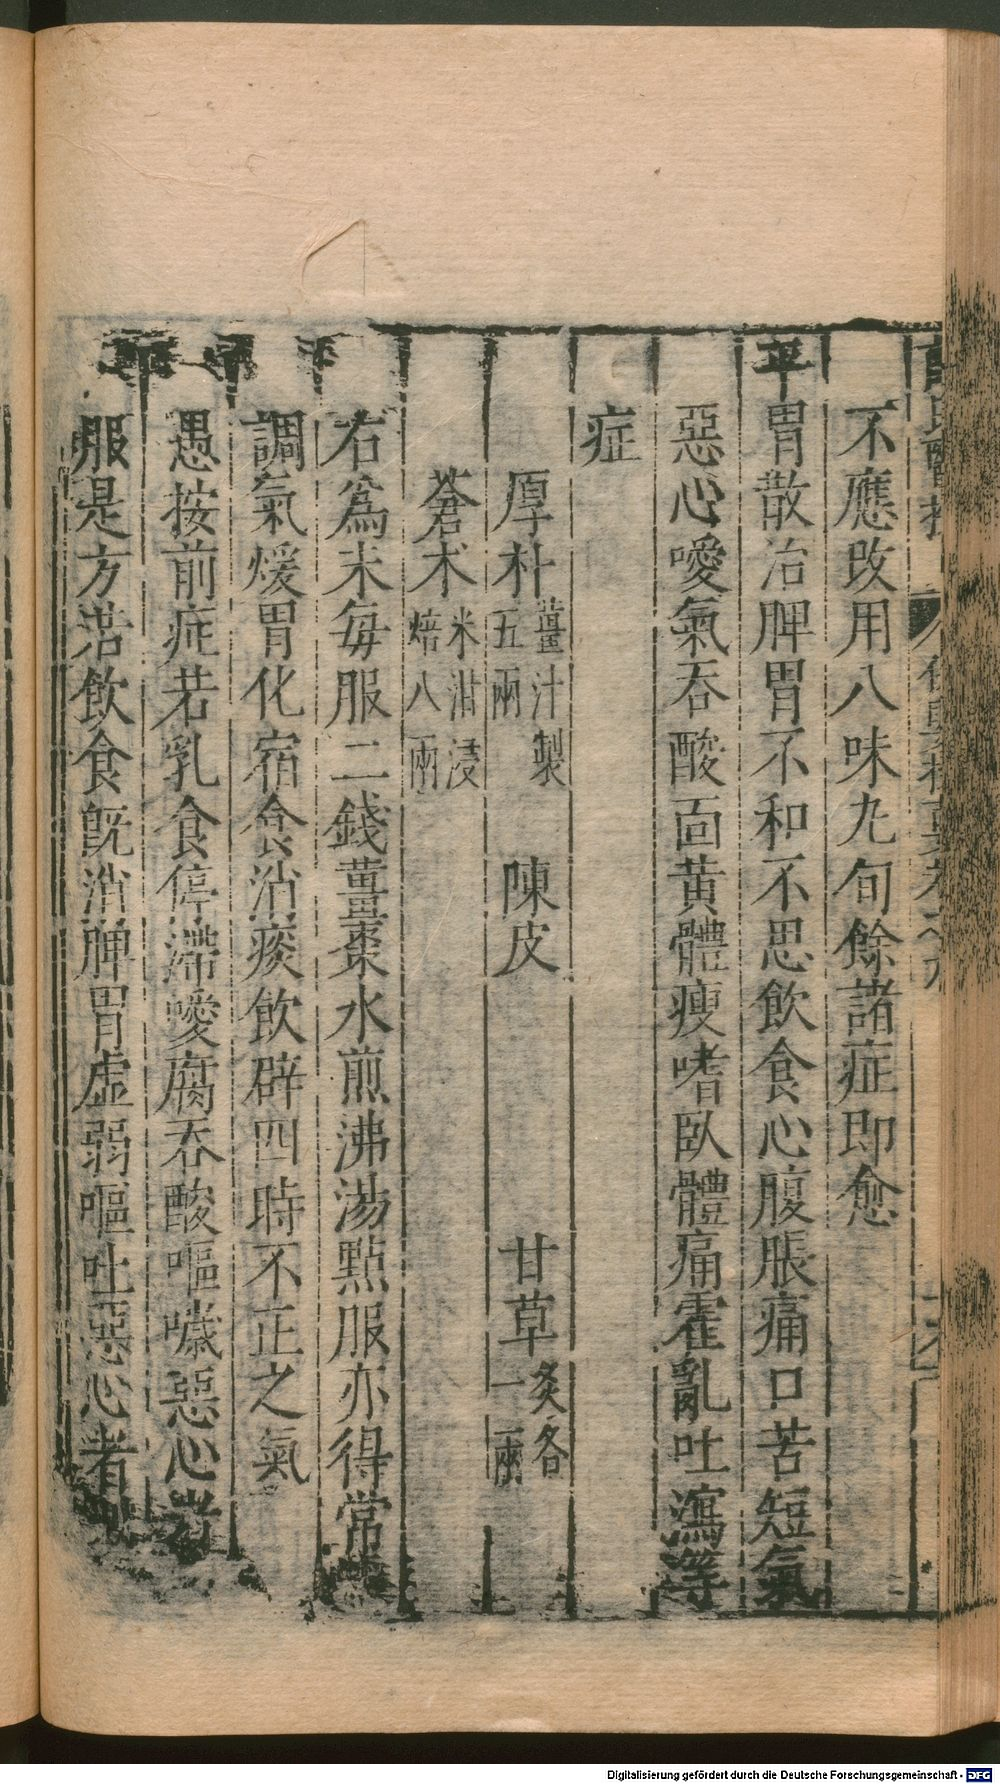 不應改用八味九旬餘諸症即愈
平胃散治脾胃不和不思飲食心腹脹痛口苦短氣
惡心噯氣吞酸面黄體瘦嗜臥體痛霍亂吐瀉等
症
厚朴薑汁製五兩 陳皮 甘草炙各一兩
蒼术米泔浸焙八兩
右爲末每服二錢薑棗水煎沸湯點服亦得常
調氣煖胃化宿食消痰飲辟四時不正之氣
愚按前症若乳食停滯噯腐吞酸嘔噦惡心者
服是方若飲食既消脾胃虛弱嘔吐惡心者
Digitalisierung gefördert durch die Deutsche Forschungsgemeinschaft - DFG